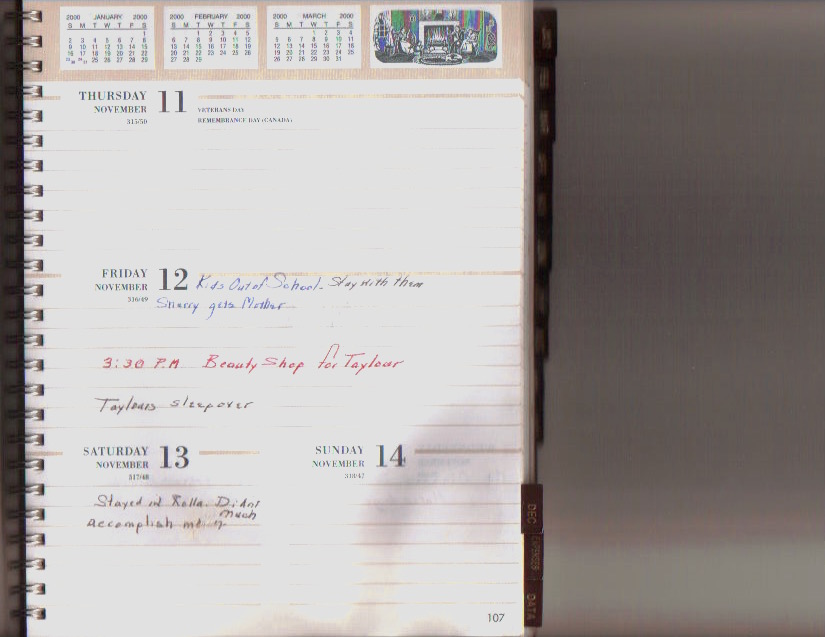 2000 JANUARY 2000
S M T W T F S
1
2 3 4 5 6 7 8
9 10 11 12 13 14 15
16 17 18 19 20 21 22
23 30 24 31 25 26 27 28 29
2000 FEBRUARY 2000
S M T W T F S
1 2 3 4 5
6 7 8 9 10 11 12
13 14 15 16 17 18 19
20 21 22 23 24 25 26
27 28 29
2000 MARCH 2000
S M T W T F S
1 2 3 4
5 6 7 8 9 10 11
12 13 14 15 16 17 18
19 20 21 22 23 24 25
26 27 28 29 30 31
THURSDAY 11
NOVEMBER
315/50
VETERANS DAY
REMEMBRANCE DAY (CANADA)
FRIDAY 12
NOVEMBER
316/49
Kids Out of School - Stay with them
Sherry gets Mother
3:30 P.M Beauty Shop for Taylour
Taylours sleepover
SATURDAY 13
NOVEMBER
317/48
Stayed in Rolla. Didnt
Accomplish much
SUNDAY 14
NOVEMBER
318/47
DEC
EXPENSES
DATA
107